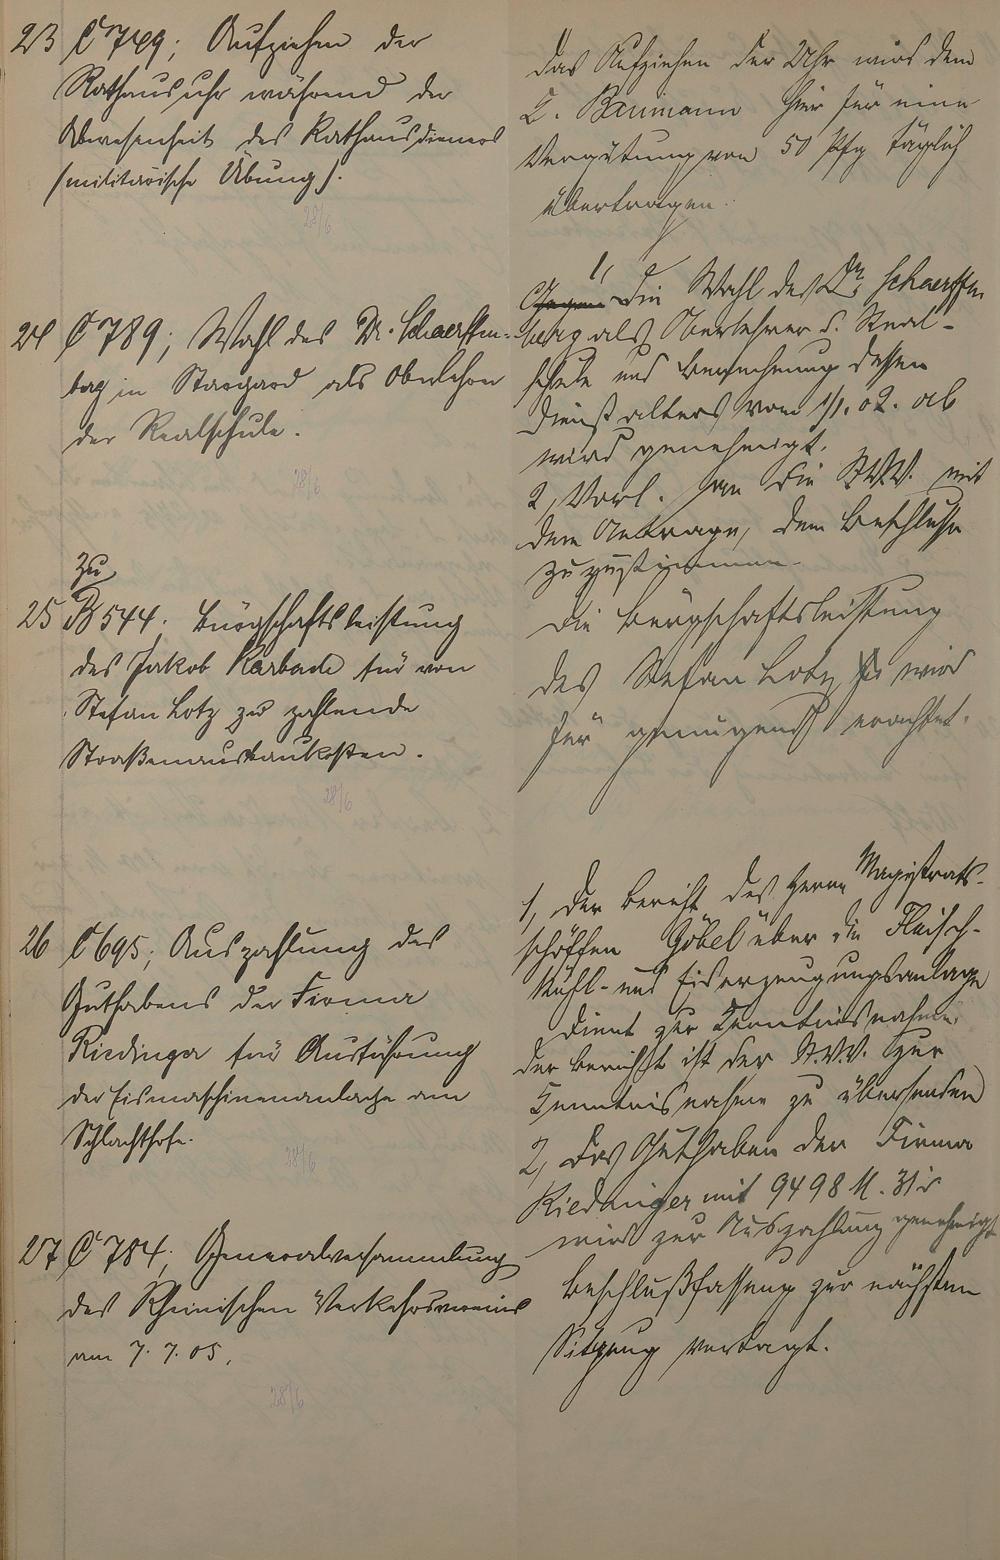 23 C 749; Aufziehen der
Rathausuhr während der
Abwesenheit des Rathausdieners
(militärische Übung).
28/6
Das Aufziehen der Uhr wird dem
C. Baumann hier für eine
Vergütung von 50 Pfg täglich
übertragen.
24 C 789; Wahl des Dr. Schaerffen-
berg in Stargard als Oberlehrer
der Realschule.
28/6
1, Die Wahl des Dr. Schaerffen
berg als Oberlehrer d. Real-
schule und Berechnung dessen
Dienstalters vom 1/1. 02. ab
wird genehmigt.
2, Vorl. an die St.V.V. mit
dem Antrage, dem Beschlusse
zuzustimmen.
zu
25 B 544. Bürgschaftsleistung
des Jakob Karbach für von
Stefan Lotz zu zahlende
Straßenausbaukosten.
28/6
Die Bürgschaftsleistung
des Stefan Lotz wird
für genügend erachtet.
26 C 695; Auszahlung des
Guthabens der Firma
Riedinger für Ausführung
der Eismaschinenanlage am
Schlachthofe.
28/6
1, Der Bericht des Herrn Magistrats-
schöffen Göbel über die Fleisch-
kühl- und Eiserzeugungsanlage
dient zur Kenntnisnahme.
der Bericht ist der St.V.V. zur
Kenntnisnahme zu übersenden
2, Das Guthaben der Firma
Riedinger mit 9498 M. 31
wird zur Auszahlung genehmigt
27 C 784; Generalversammlung
des Rheinischen Verkehrsvereins
am 7. 7. 05.
28/6
Beschlußfassung zur nächsten
Sitzung vertagt.